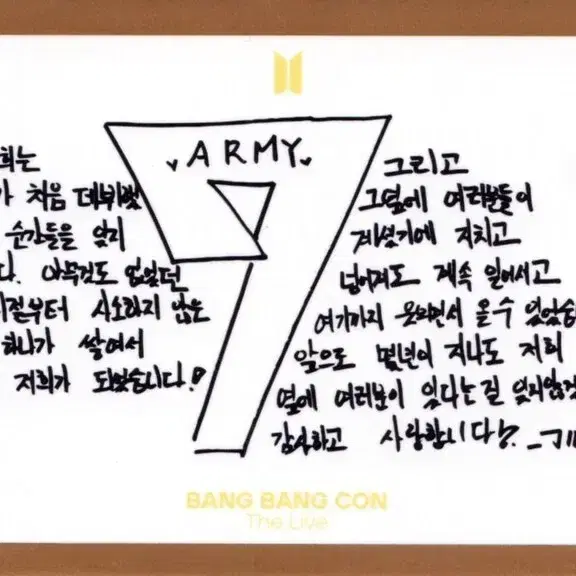 ARMY
희는
가 처음 데뷔했
순간들을 잊지
다. 아무것도 없었던
시절부터 사소하지 않은
하나가 쌓여서
저희가 되었습니다!
그리고
그 옆에 여러분들이
계셨기에 지치고
넘어져도 계속 일어서고
여기까지 웃으면서 올 수 있었습
앞으로 몇년이 지나도 저희
옆에 여러분이 있다는 걸 잊지않
감사하고 사랑합니다!
BANG BANG CON
The Live